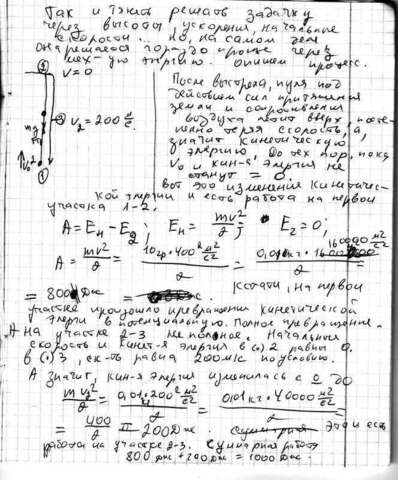 Так и тянет решать задачку
через высоты, ускорения, начальные
скорости... Но, на самом деле
она решается гораздо проще через
мех-ую энергию. Опишем процесс.
V=0
После выстрела, пуля под
действием сил притяжения
земли и сопротивления
воздуха летит вверх, посте-
пенно теряя скорость, а,
значит кинетическую
энергию. До тех пор, пока
V₀ и кин-я энергия не
станут = 0.
V₂ = 200 м/с
mg
V₀
Вот это изменения кинетичес-
кой энергии и есть работа на первом
участке 1-2.
A = Eн - E2; Eн = mv²/2; E2 = 0;
A = mv²/2 = 10гр · 400² м²/с²/2 = 0,01кг · 160000 м²/с²/2
= 800 Дж
Кстати, на первом
участке произошло превращении кинетической
энерги в потенциальную. Полное превращение.
А на участке 2-3 не полное. Начальные
скорость и кинет-я энергия в (·) 2 равны 0,
в (·) 3, ск-ть равна 200м/с по условию.
А значит, кин-я энергия изменилась с 0 до
mv₂²/2 = 0,01 · 200² м²/с²/2 = 0,01кг · 40000 м²/с²/2
= 400/2 = 200Дж. Это и есть
работа на участке 2-3. Суммарная работа
800 Дж + 200 Дж = 1000 Дж.